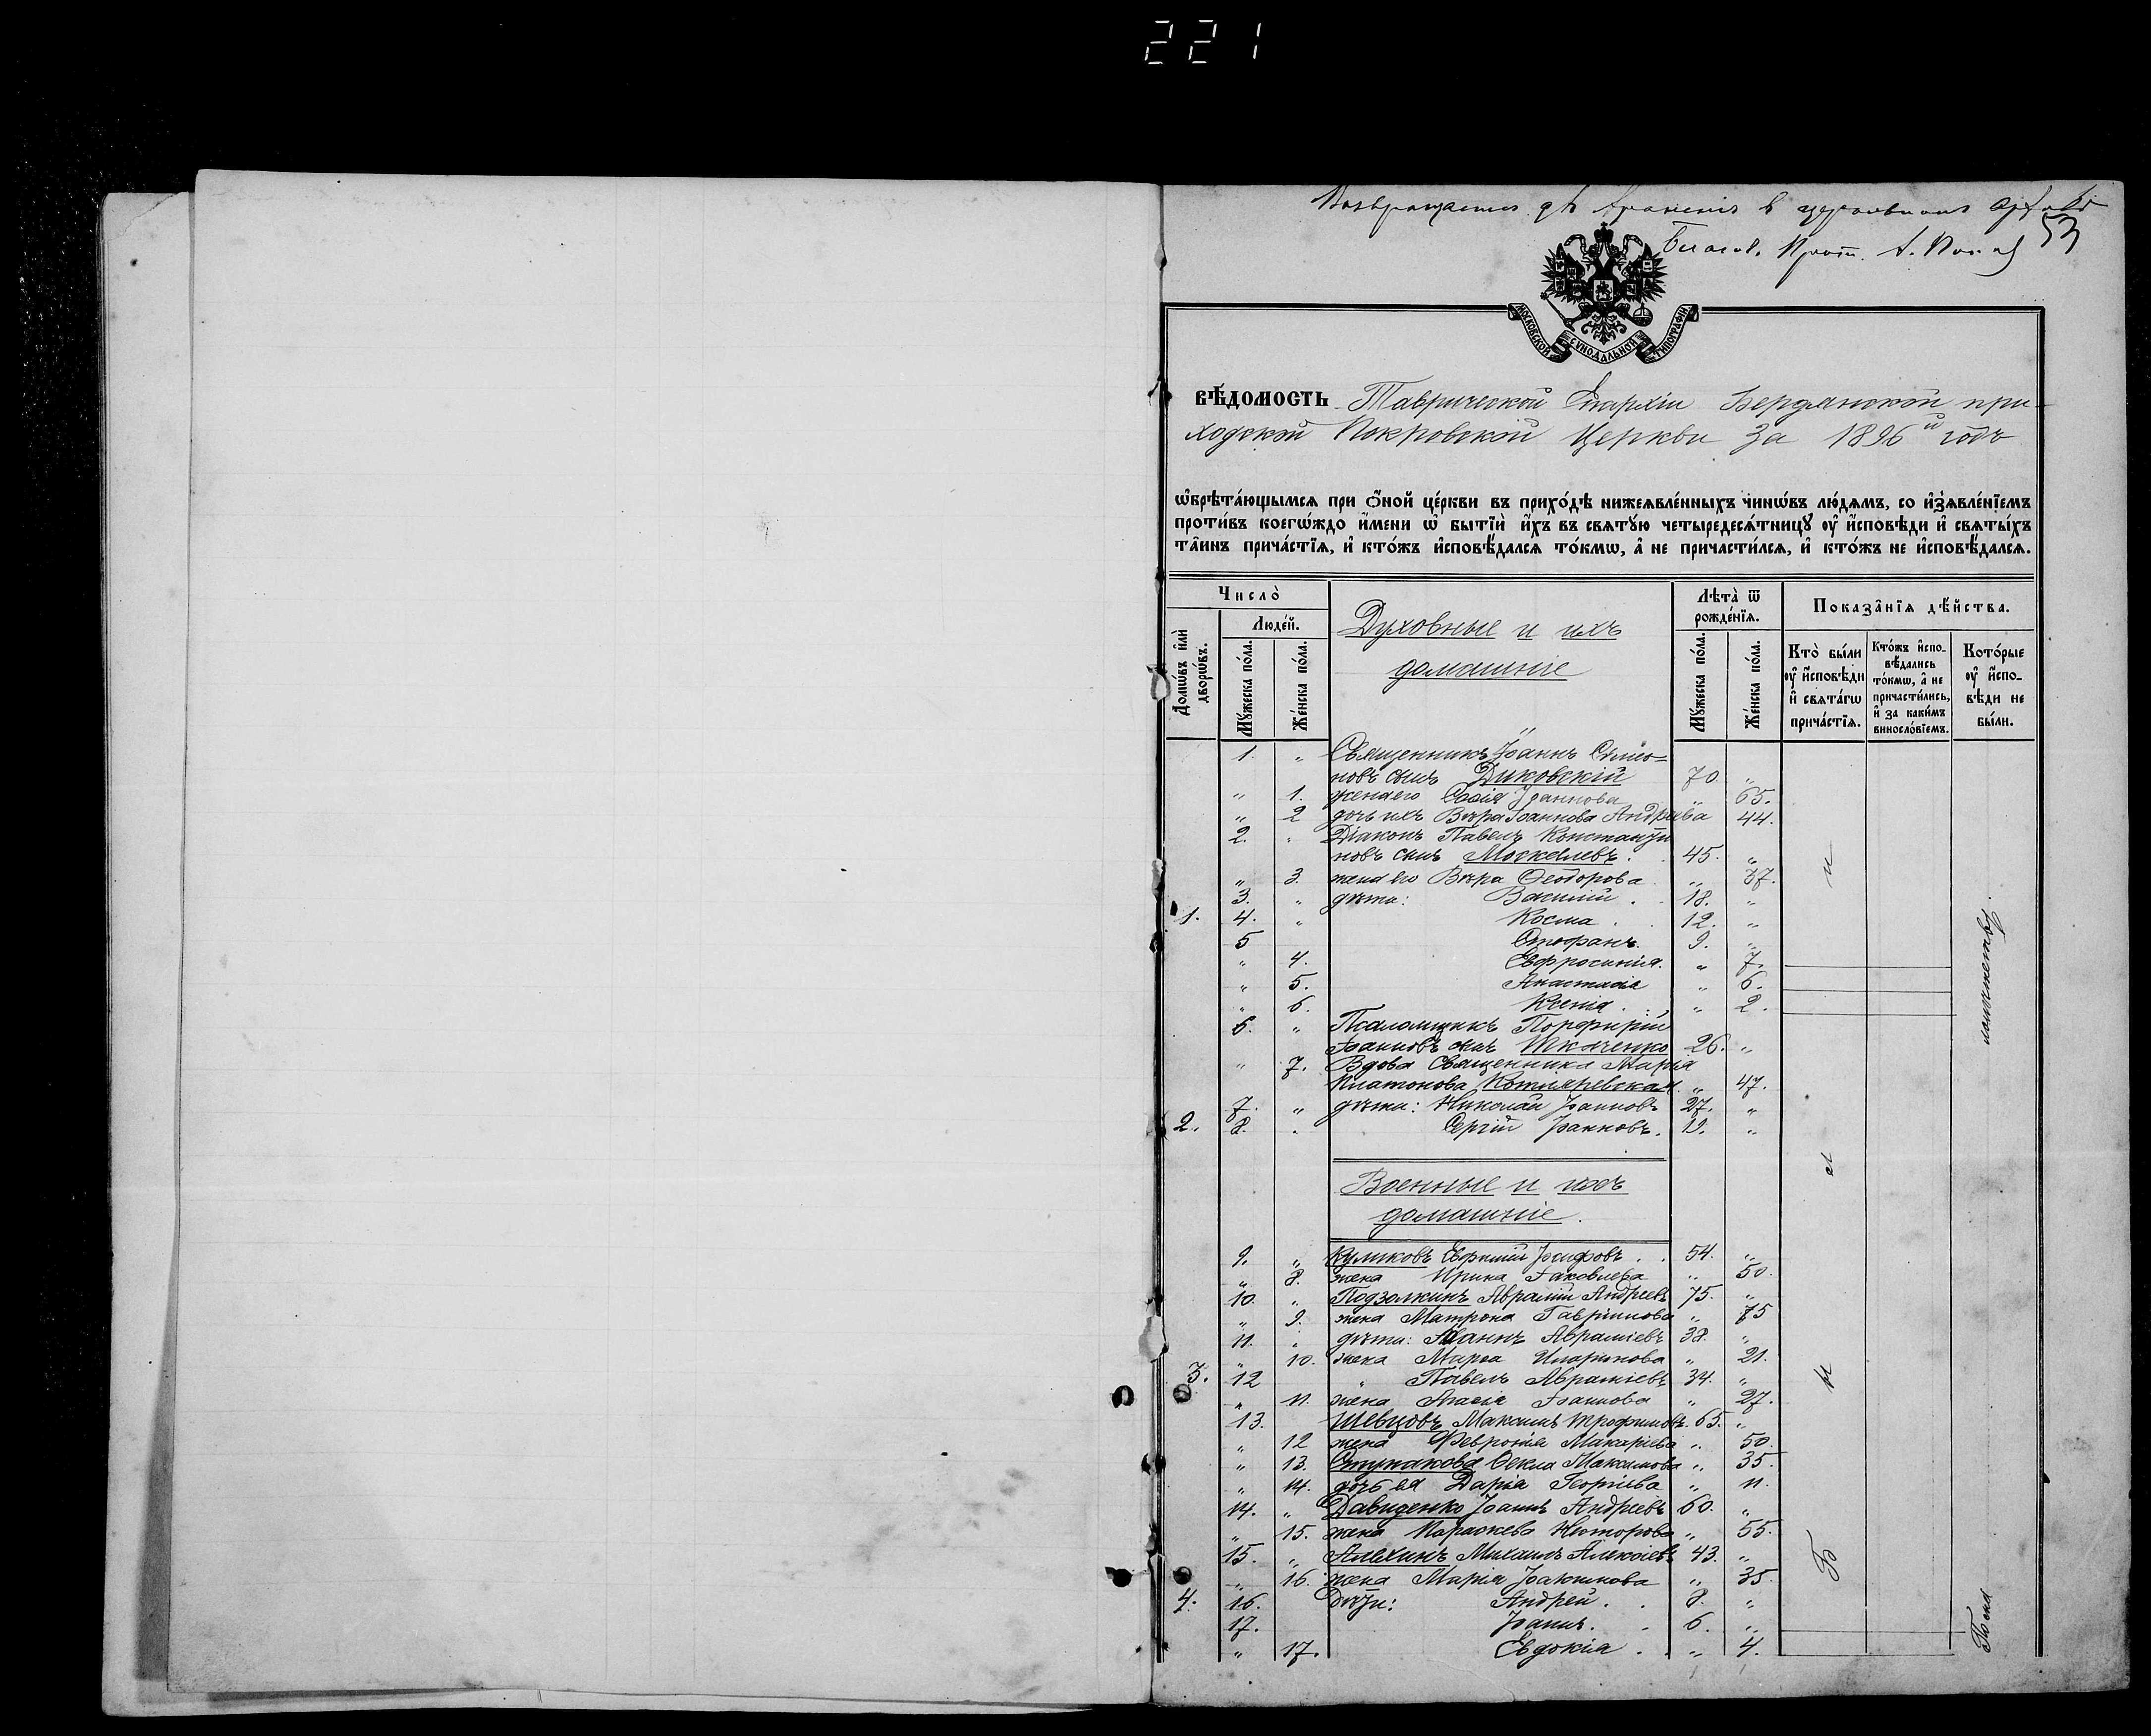 221
Возвращается для храненія в церковном архиве
53
Благоч. Прот. А.
МОСКОВСКОЙ СѴНОДАЛЬНОЙ ТИПОГРАФІИ
ВѢДОМОСТЬ Таврической Епархіи Бердянской при-
ходской Покровской Церкви за 1896й годъ
ѡ҆брѣта́ющымсѧ при ѻ҆́ной це́ркви въ прихо́дѣ нижеѧвле́нныхъ чинѡ́въ лю́дѧмъ, со и҆з̾ѧвле́нїемъ
проти́въ коегѡ́ждо и҆́мени ѡ҆ бытїѝ и҆́хъ въ свѧту́ю четыредесѧ́тницꙋ ᲂу҆ и҆́сповѣди и҆ свѧты́хъ
та̑инъ прича́стїѧ, и҆ кто́жъ и҆сповѣ́далсѧ то́кмѡ, а҆ не причасти́лсѧ, и҆ кто́жъ не и҆сповѣ́далсѧ.
Число̀
Домѡ́въ и҆лѝ дворѡ́въ.
Люде́й.
Мꙋ́жеска по́ла.
Же́нска по́ла.
Духовные и ихъ
домашніе
Лѣта̀ ѿ рожде́нїѧ.
Мꙋ́жеска по́ла.
Же́нска по́ла.
Показа̑нїѧ дѣ́йства.
Кто̀ бы́ли ᲂу҆ и҆́сповѣди и҆ свѧта́гѡ прича́стїѧ.
Кто́жъ и҆спо-вѣ́дались то́кмѡ, а҆ не причасти́лись, и҆ за каки́мъ винослові́емъ.
Кото́рые ᲂу҆ и҆́спо-вѣди не бы́ли.
1. " Священникъ Іоаннъ Симо=
новъ сынъ Диковскій 70 "
" 1. жена его Софія Іоаннова " 65.
" 2 дочь ихъ Вѣра Іоаннова Андрѣева 44.
2. " Діаконъ Павелъ Константи
новъ сынъ Москалевъ. 45. "
" 3. жена его Вѣра Ѳеодорова " 37.
3. " дѣти: Василій. 18. "
1. 4. " Косма. 12. "
5 Стефанъ. 9. "
" 4. Евфросинія. " 7.
" 5. Анастасія " 6.
" 6. Ксенія. " 2.
6. " Псаломщикъ Порфирій
Іоанновъ сынъ Ткаченко 26. "
" 7. Вдова Священника Марія
Платонова Котляревская. " 47.
7. " дѣти: Николай Іоанновъ 27. "
2. 8. " Сергій Іоанновъ. 19. "
Военные и ихъ
домашніе.
9. " Куликовъ Евфимій Іосифовъ. 54. "
" 8. жена Ирина Іаковлева " 50.
10. " Подзолкинъ Аврамій Андреевъ 75. "
" 9. жена Матрона Гавріилова " 75
11. " дѣти: Іоаннъ Авраміевъ 38. "
" 10. жена Марѳа Иларіонова " 21.
3. 12 " Павелъ Авраміевъ 34. "
" 11. жена Іоаннова " 27.
13. Шевцовъ Максимъ Трофимовъ. 65. "
" 12 жена Февронія Макаріева " 50.
" 13. Ступакова Ѳекла Максимова " 35.
" 14. дочь ея Дарія Георгіева " 11.
14. " Давиденко Іоаннъ Андреевъ 60. "
" 15. жена Параскева Несторова " 55.
15. " Алехинъ Михаилъ Алексіевъ 43. "
" 16. жена Марія Іоакимова " 35.
4. 16. Дѣти: Андрей. 8. "
17. Іоаннъ. 6. "
" 17. Евдокія. " 4.
Б ы л и
По